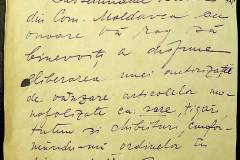 din Com. Moldovea cu
onoare vă rog să
binevoiți a dispune
eliberarea unei autorizație
de vânzare articolelor mo-
nopolizate ca: sare, țigări
tutun și chibrituri, confor-
mându-mă ordinelor în